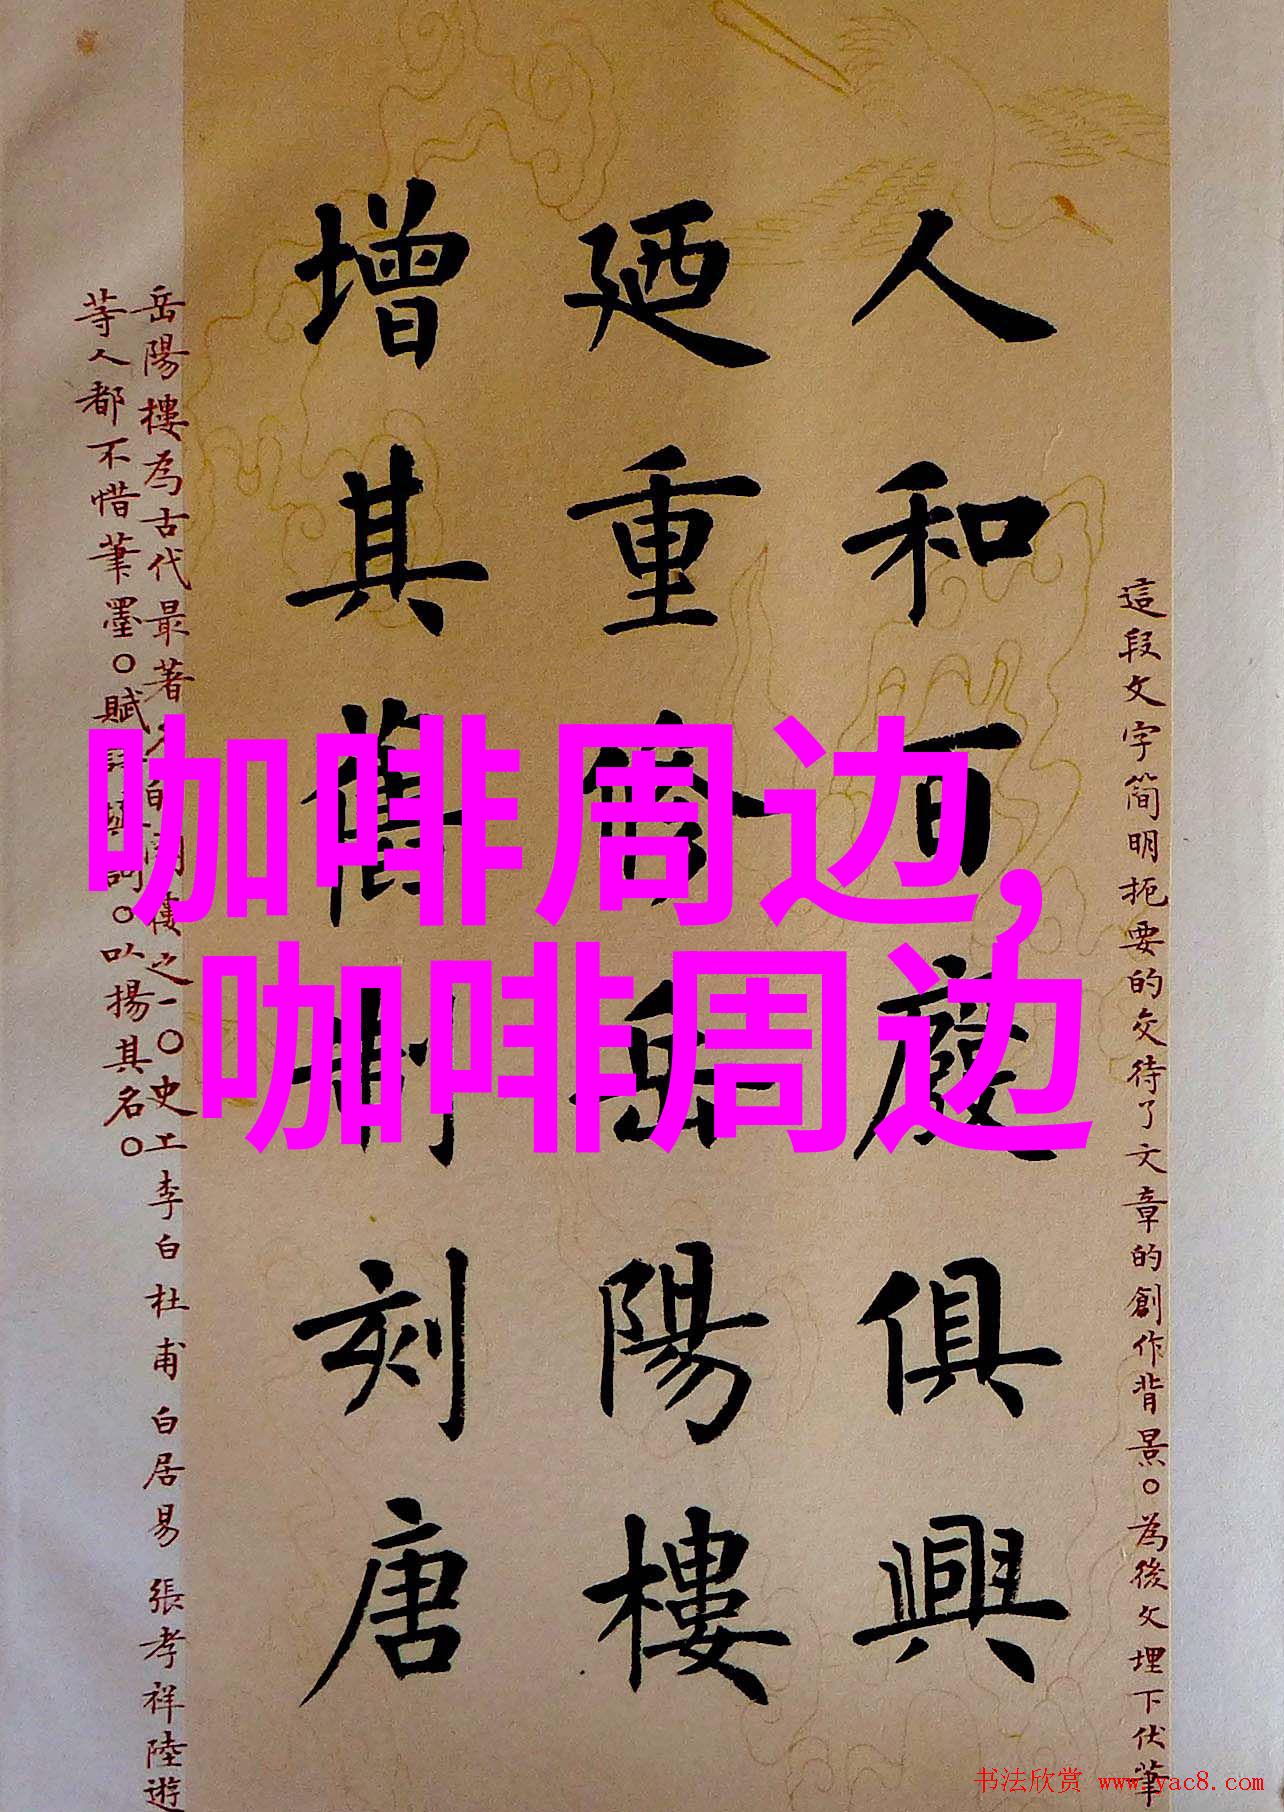 這段文字简明扼要的交待了文章的創作背景。為後文埋下伏筆
人和百廢俱興
廼重修岳陽樓
增其舊制刻唐
岳陽樓為古代最著名的閣樓之一。史上李白杜甫白居易張孝祥陸遊
等人都不惜筆墨。賦詩填詞。以揚其名。
咖啡周边,
咖啡周边
书法欣赏 www.yac8.com